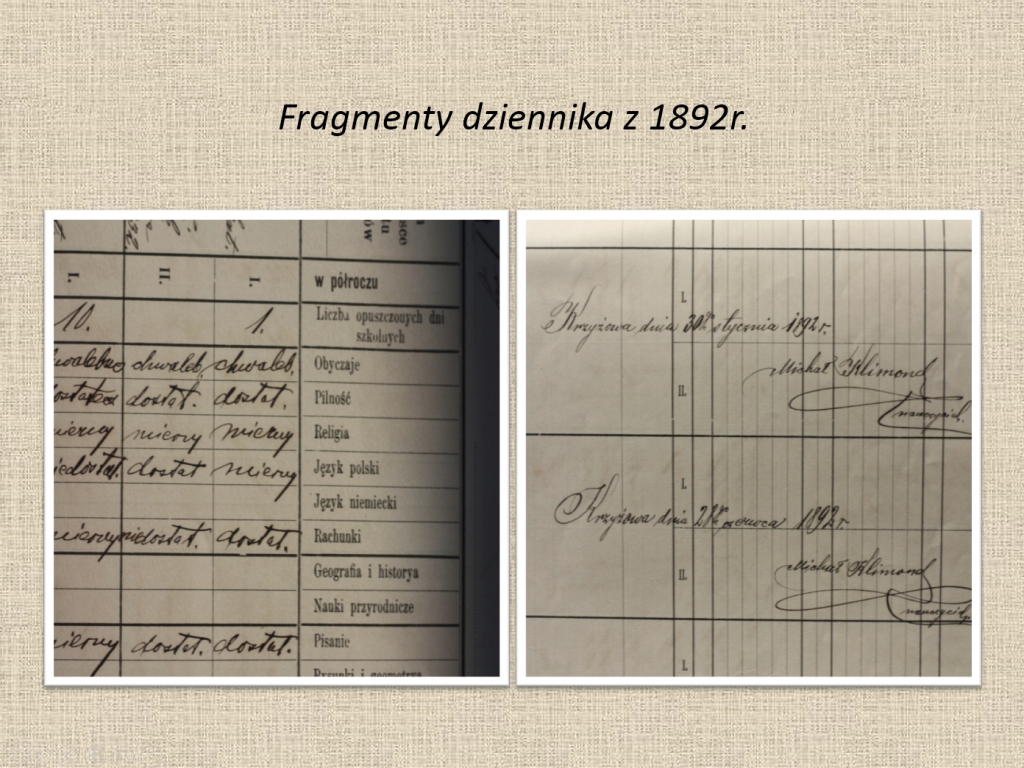 Fragmenty dziennika z 1892r.
I. II. I. w półroczu
10. 1. Liczba opuszczonych dni
szkolnych
chwaleb. chwaleb. Obyczaje
dostat. dostat. Pilność
mierny mierny Religia
dostat mierny Język polski
Język niemiecki
niedostat. dostat. Rachunki
Geografia i historya
Nauki przyrodnicze
dostat. dostat. Pisanie
Rysunki i geometrya
I.
Krzyżowa dnia 30go stycznia 1892r.
II.
Michał Klimond
nauczyciel.
I.
Krzyżowa dnia 28go czerwca 1892r.
II.
Michał Klimond
nauczyciel.
I.